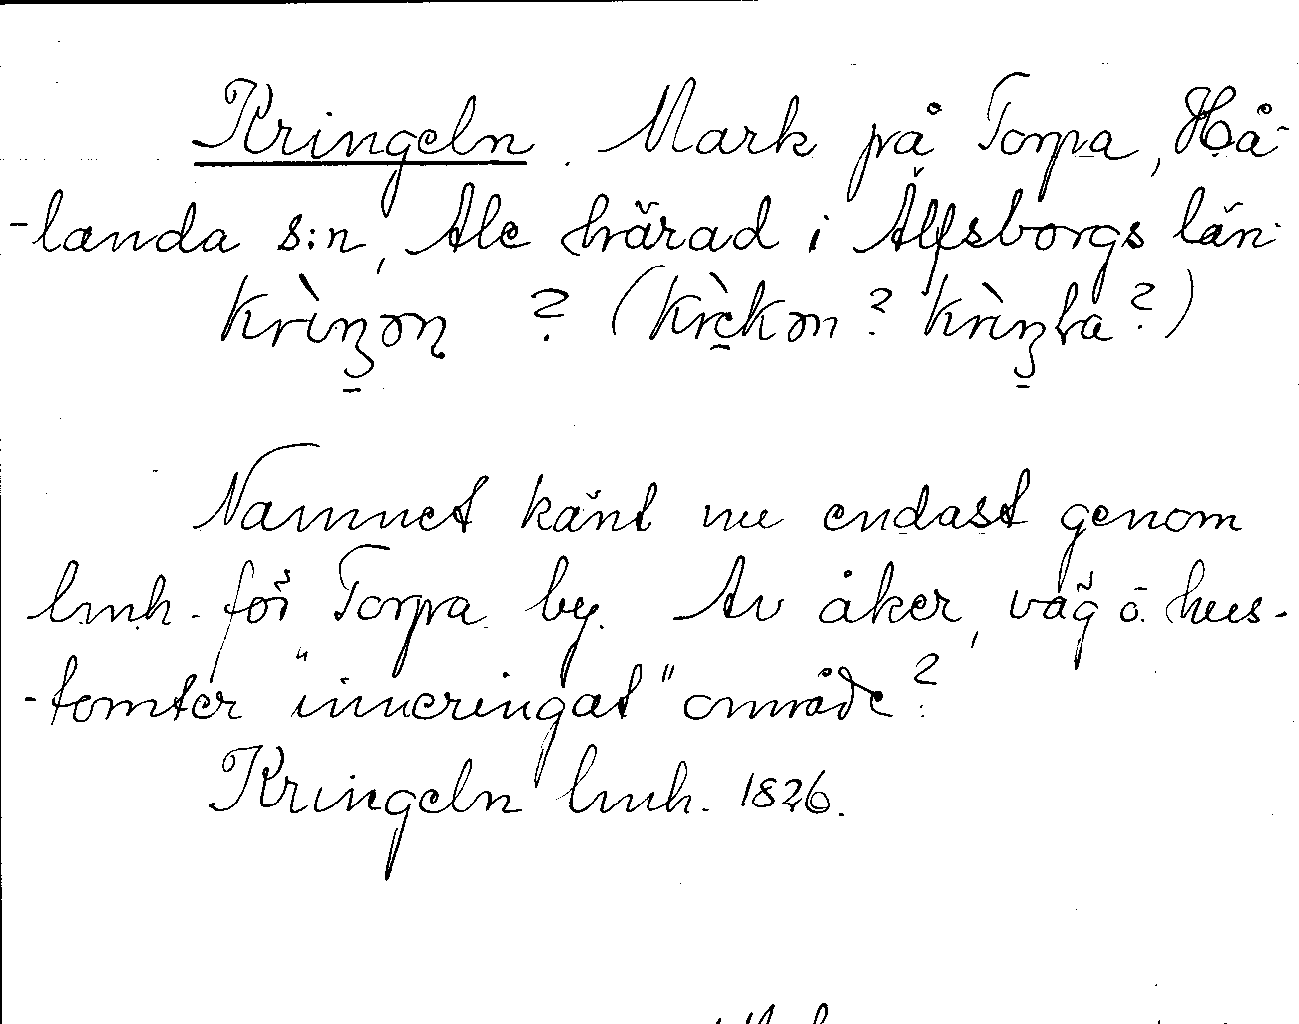 Kringeln. Mark på Torpa, Hå-
-landa s:n, Ale härad i Älfsborgs län.
krìŋən ? (krìkən ? krìŋla ?)
Namnet känt nu endast genom
lmh. för Torpa by. Av åker, väg o. hus-
-tomter "inneringat" område?
Kringeln lmh. 1826.